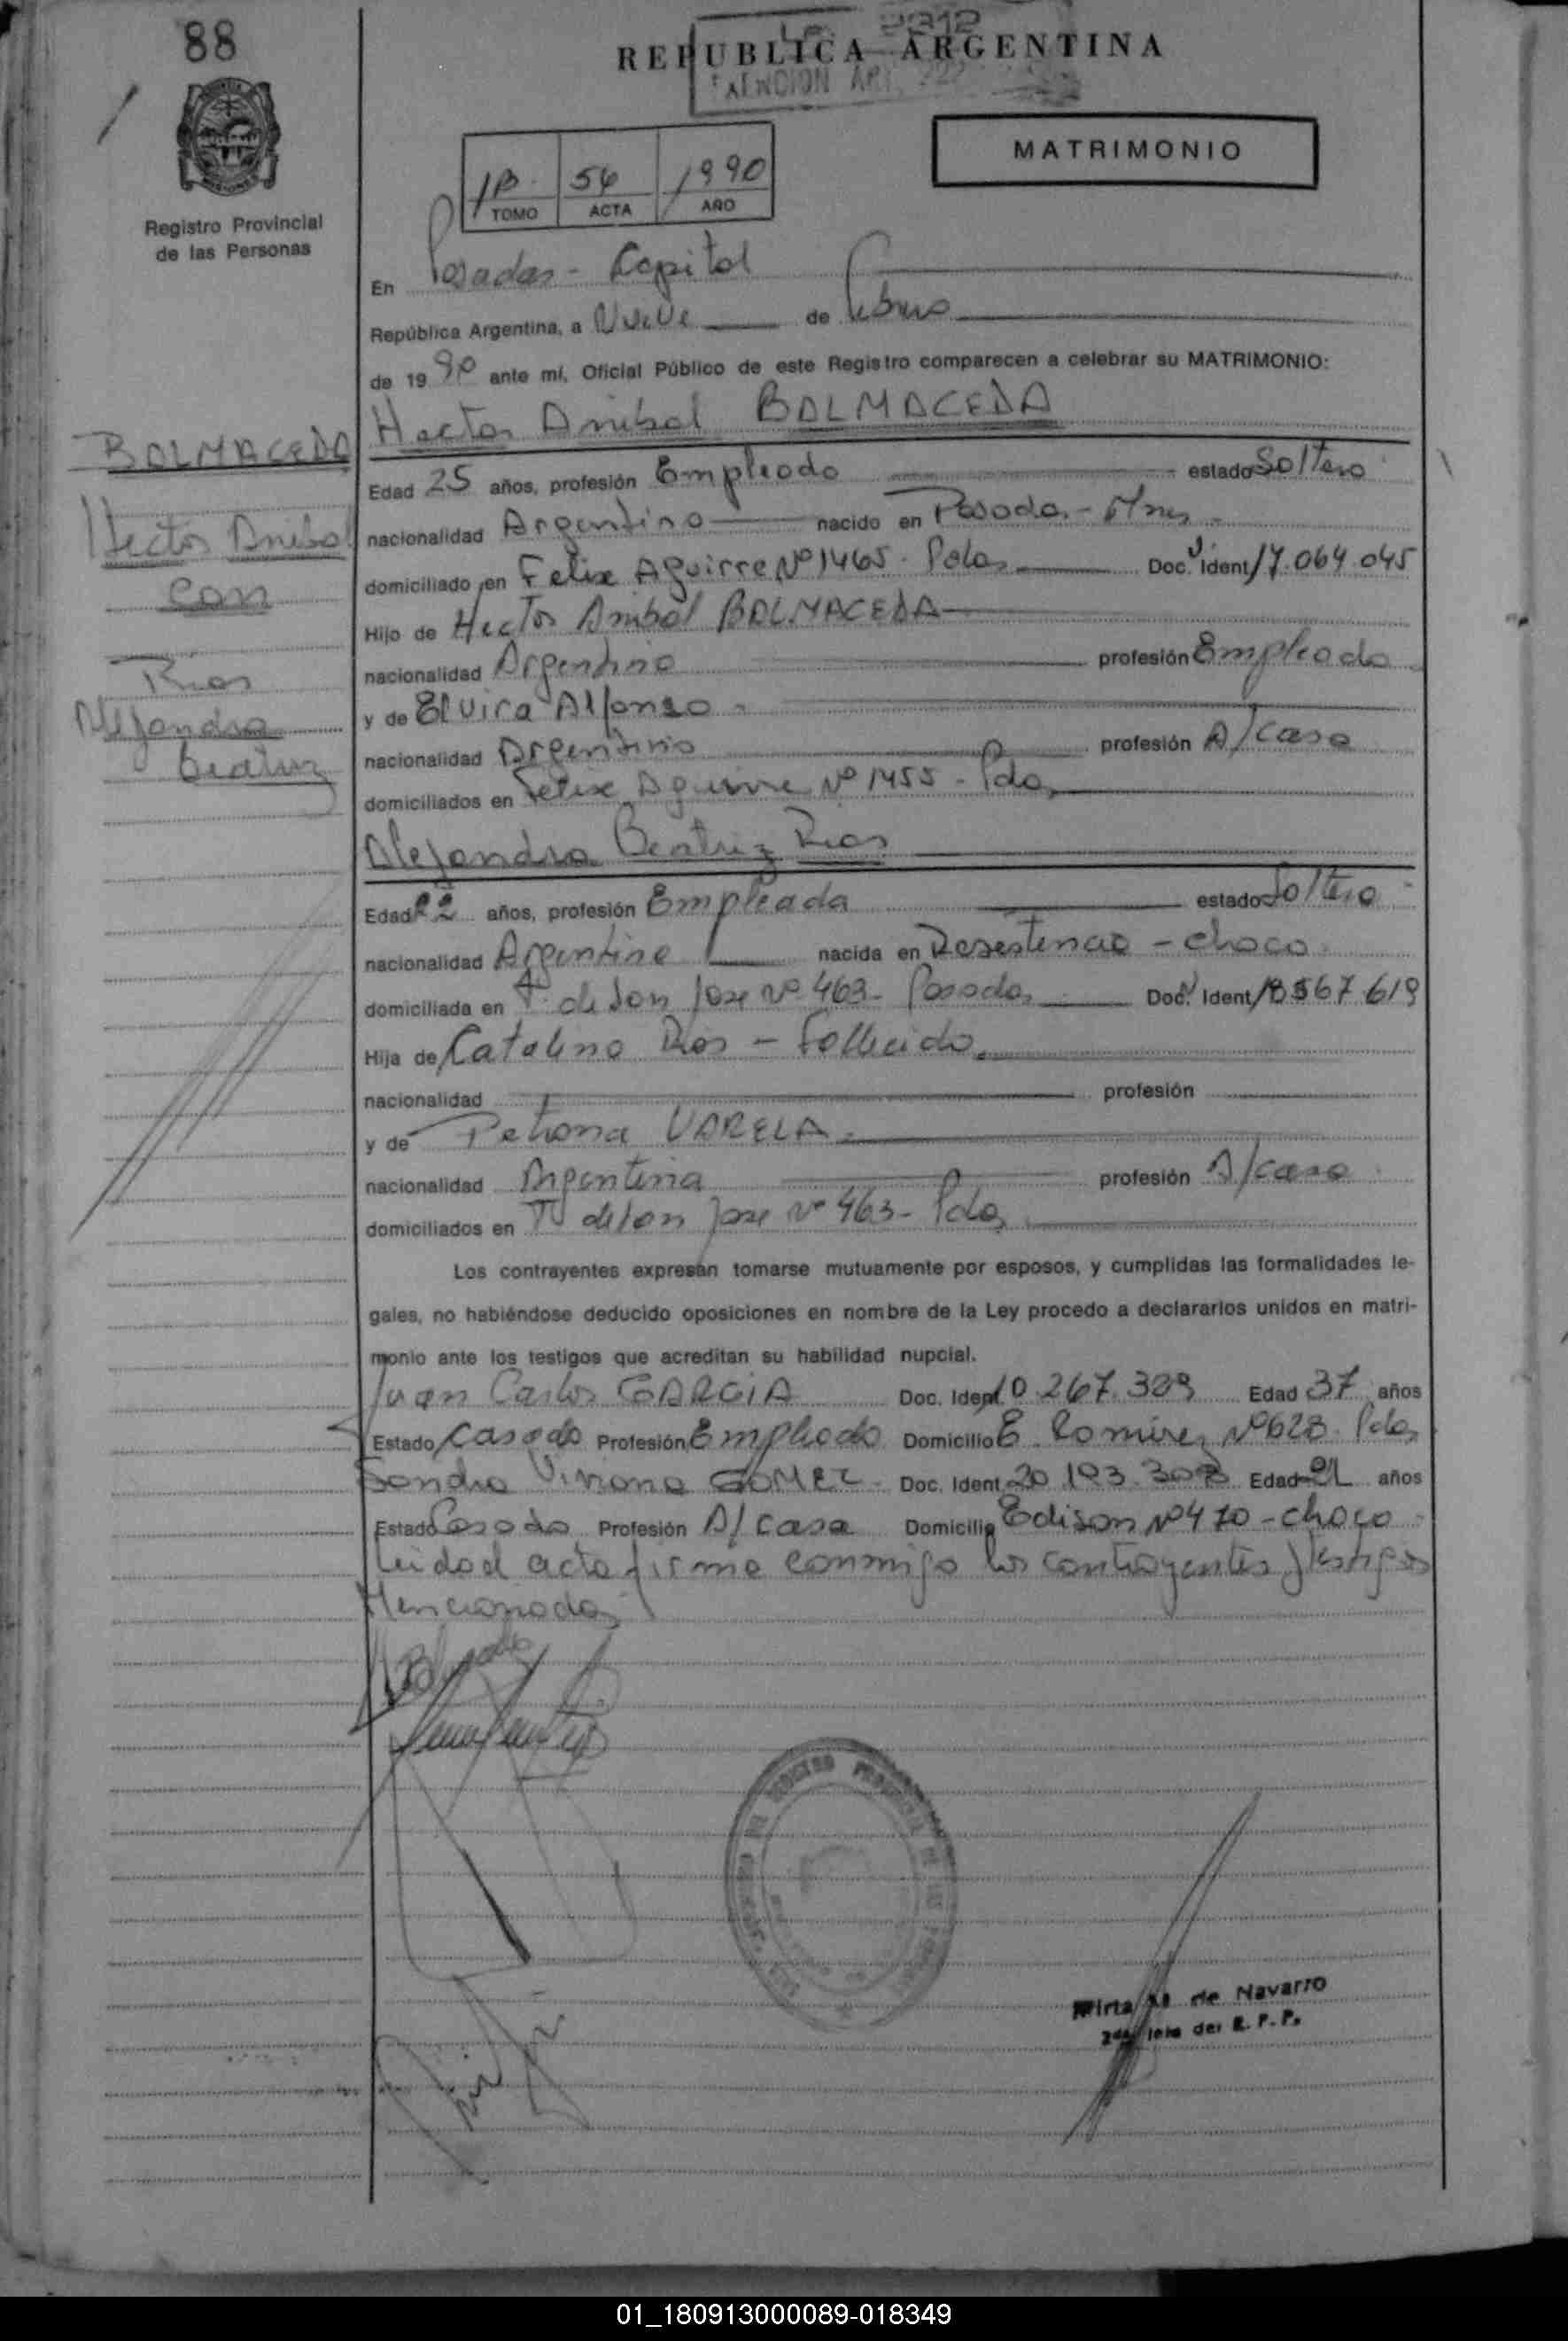 88
REPUBLICA ARGENTINA
MATRIMONIO
1B 54 1990
TOMO ACTA AÑO
Registro Provincial
de las Personas
En Posadas - Capital
República Argentina, a Nueve de Febrero
de 1990 ante mí, Oficial Público de este Registro comparecen a celebrar su MATRIMONIO:
Hector Anibal BALMACEDA
BALMACEDA
Hector Anibal
con
Rios
Alejandra
Beatriz
Edad 25 años, profesión Empleado estado Soltero
nacionalidad Argentino nacido en Posadas - Mnes
domiciliado en Felix Aguirre Nº 1465 - Pdas Doc. Ident 17.064.045
Hijo de Hector Anibal BALMACEDA
nacionalidad Argentino profesión Empleado
y de Elvira Alfonso
nacionalidad Argentina profesión A/casa
domiciliados en Felix Aguirre Nº 1455 - Pdas
Alejandra Beatriz Rios
Edad 22 años, profesión Empleada estado Soltera
nacionalidad Argentina nacida en Resistencia - Chaco
domiciliada en de San Jose Nº 463 - Posadas Doc. Ident 18567.619
Hija de Catalino Rios - Fallecido
nacionalidad profesión
y de Petrona VARELA
nacionalidad Argentina profesión A/casa
domiciliados en de San Jose Nº 463 - Pdas
Los contrayentes expresan tomarse mutuamente por esposos, y cumplidas las formalidades le-
gales, no habiéndose deducido oposiciones en nombre de la Ley procedo a declararlos unidos en matri-
monio ante los testigos que acreditan su habilidad nupcial.
Juan Carlos GARCIA Doc. Ident 10.267.309 Edad 37 años
Estado Casado Profesión Empleado Domicilio E. Ramirez Nº 628 - Pdas
Sandra Viviana GOMEZ Doc. Ident 20.193.308 Edad 21 años
Estado Casada Profesión A/casa Domicilio Edison Nº 470 - Chaco
Leida el acta firma conmigo los contrayentes y testigos
Mencionados
Mirta de Navarro
del R. P. P.
01_180913000089-018349